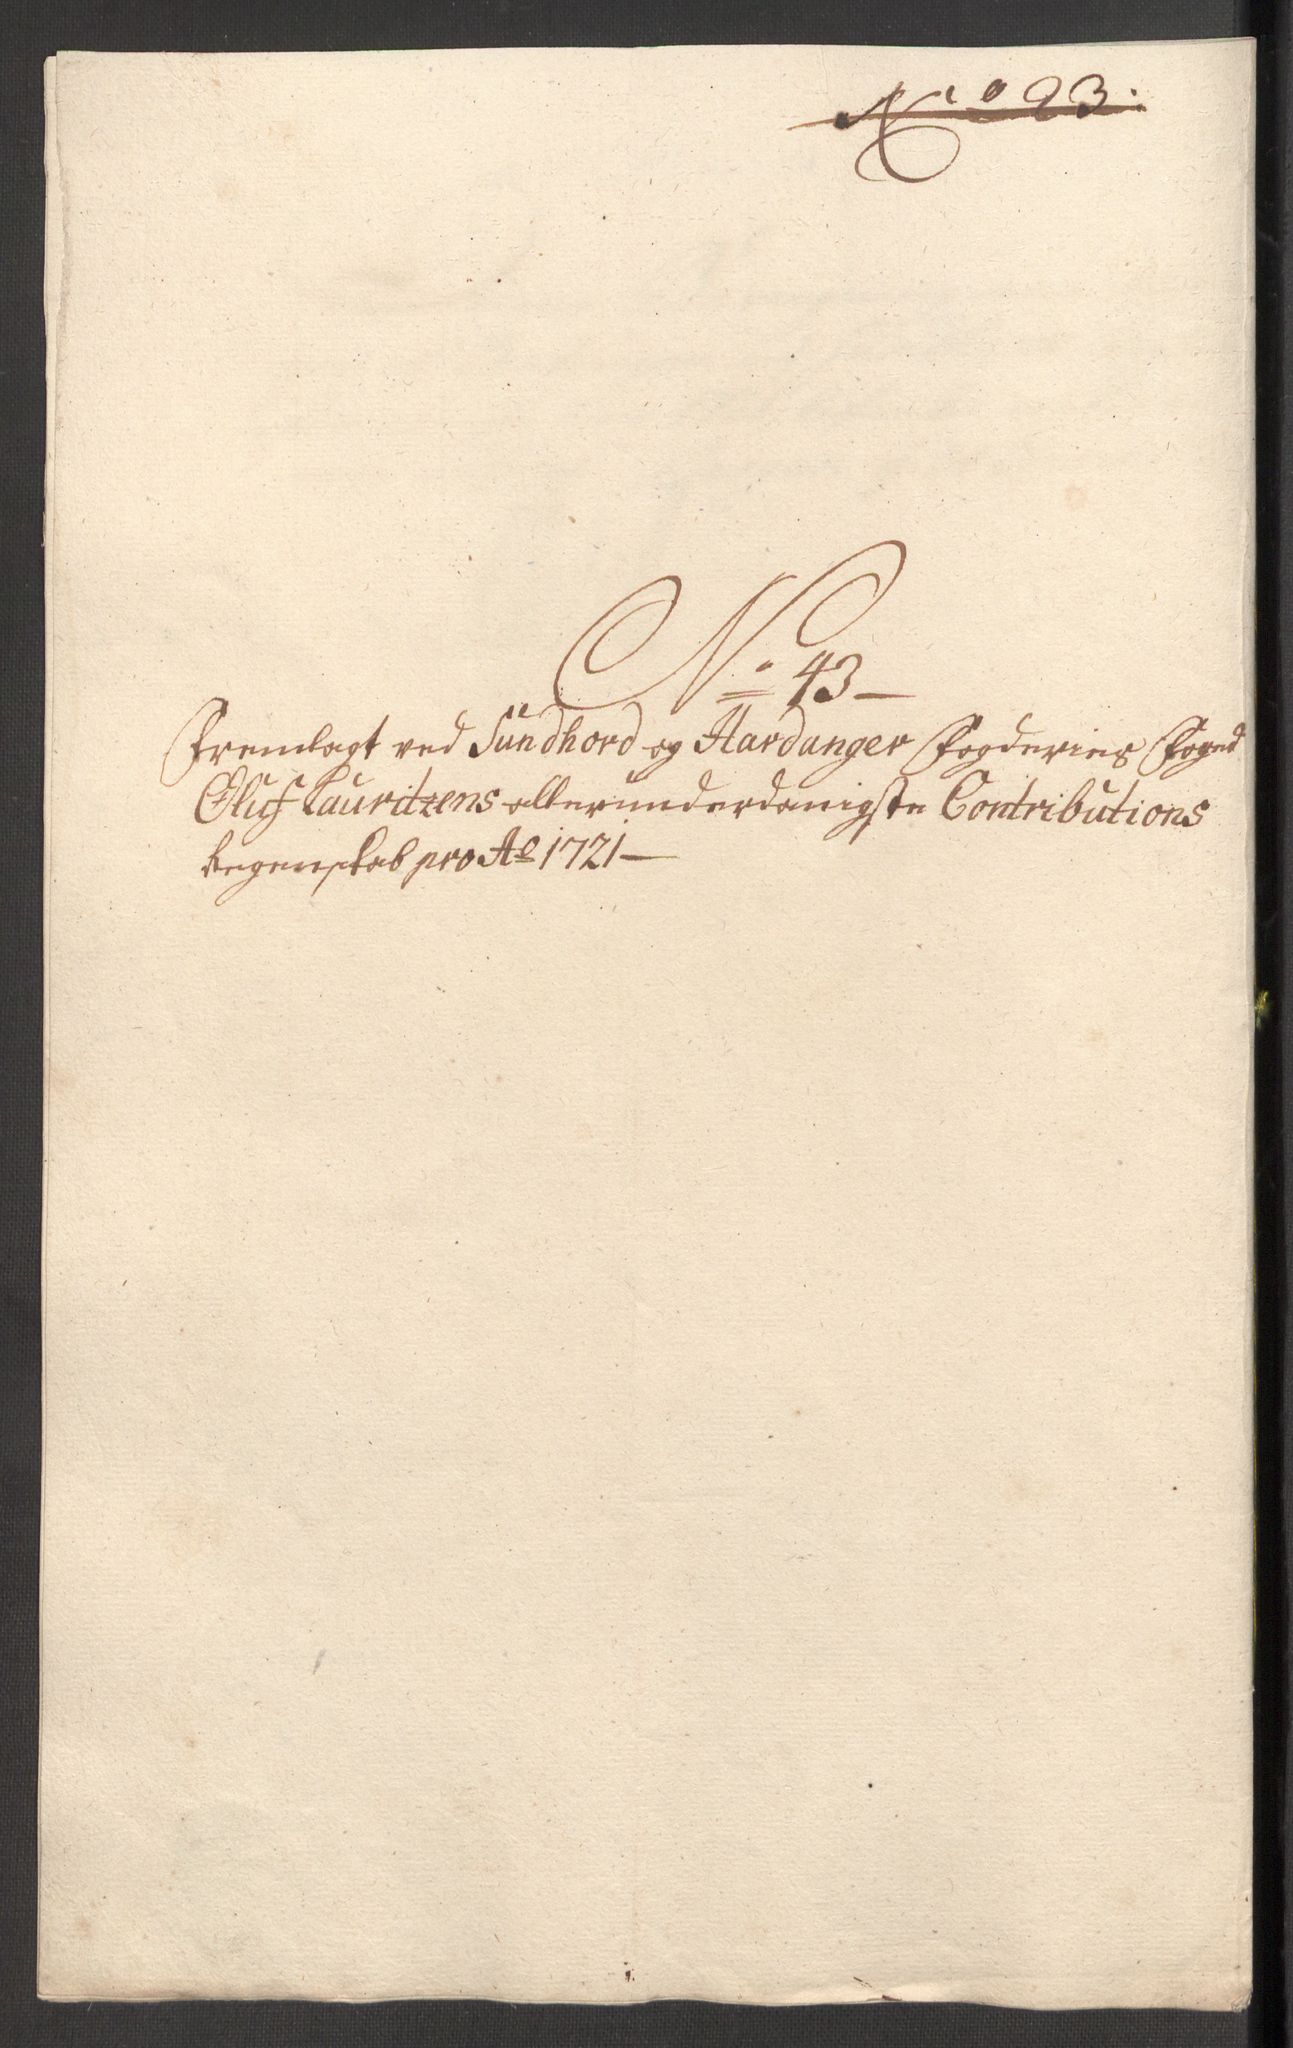 No 23.
No 43
Fremlagt ved Sundhord og Hardanger Fogderies Foged
Oluf Lauritzens allerunderdanigste Contributions
Regenskab pro Ao 1721